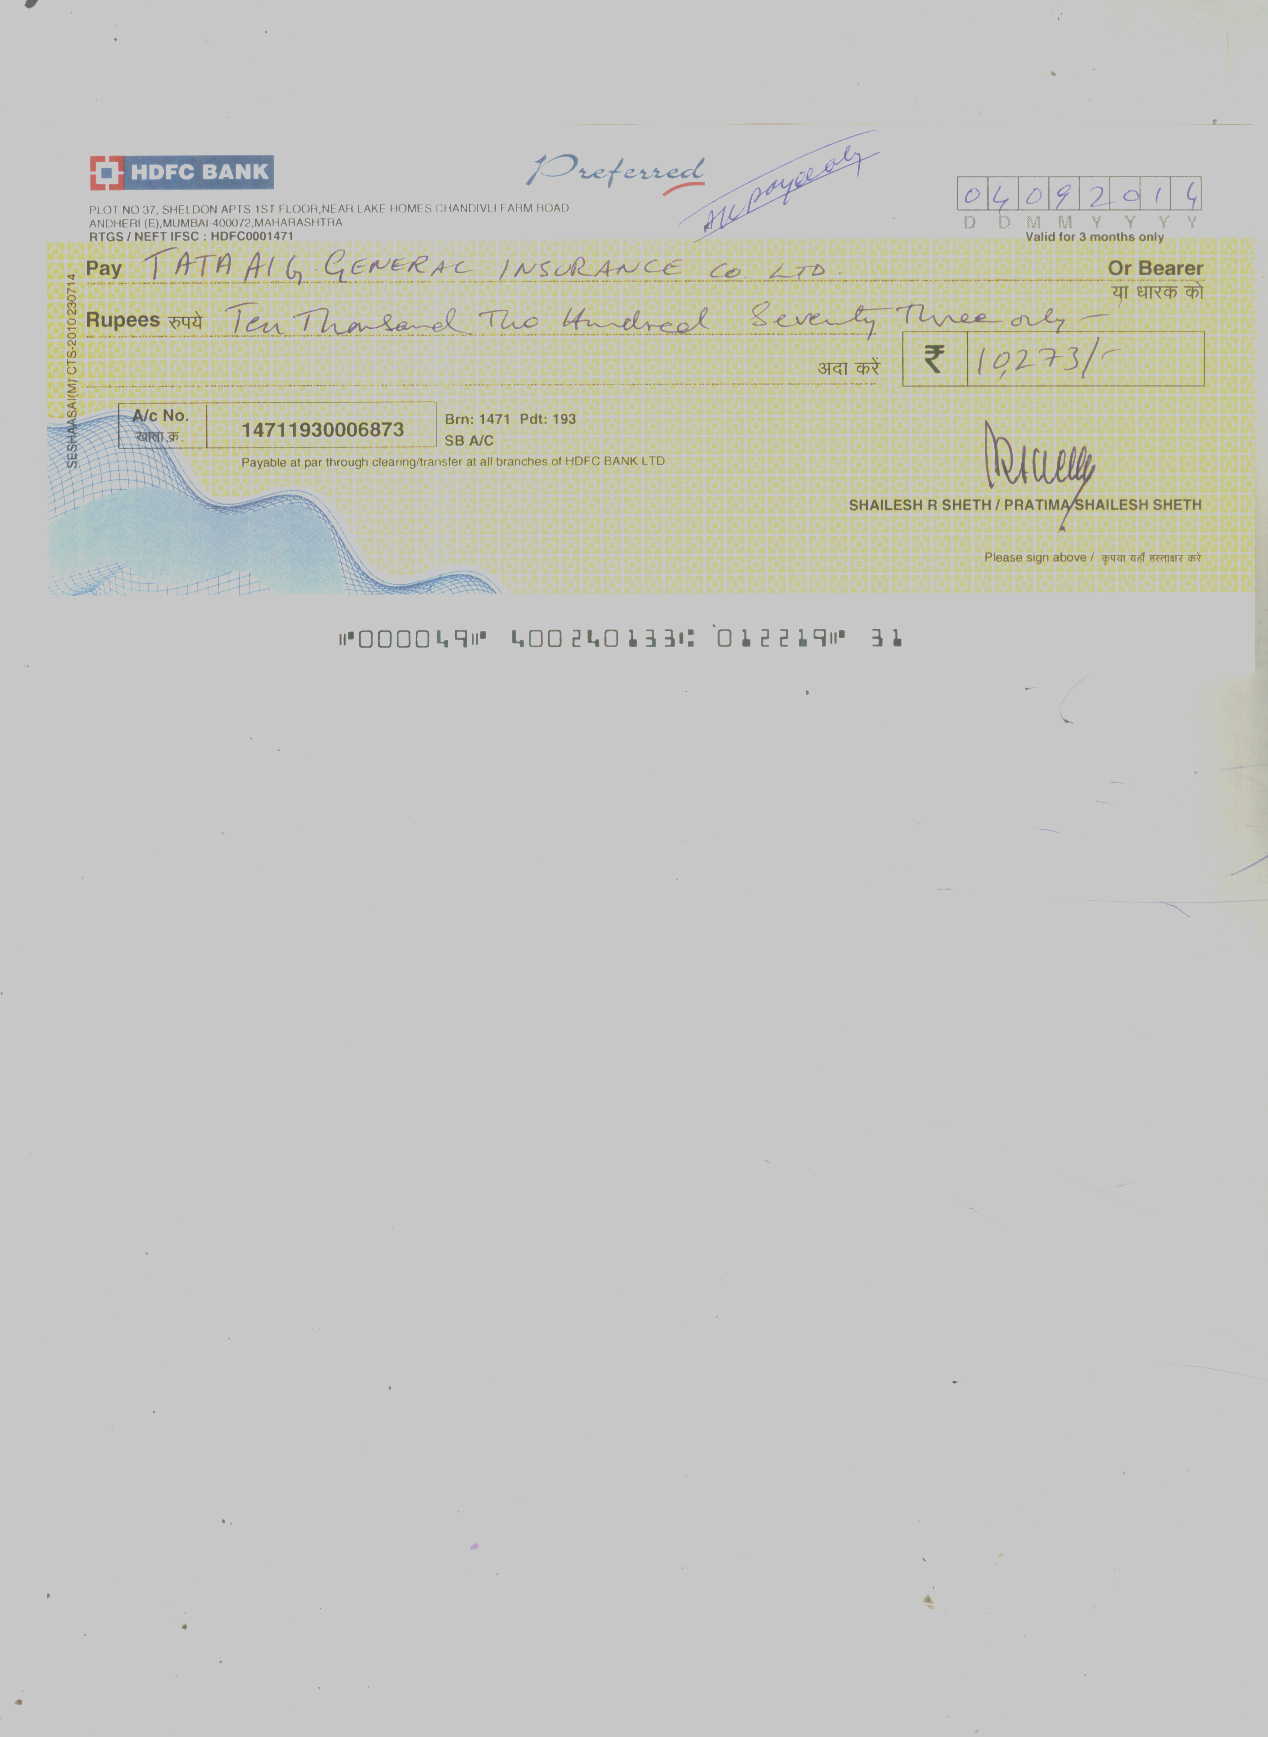 HDFC BANK
Preferred
A/c payee only
PLOT NO 37, SHELDON APTS 1ST FLOOR,NEAR LAKE HOMES CHANDIVLI FARM ROAD
ANDHERI (E),MUMBAI 400072,MAHARASHTRA
RTGS / NEFT IFSC : HDFC0001471
04092014
D D M M Y Y Y Y
Valid for 3 months only
Pay TATA AIG GENERAL INSURANCE Co LTD. Or Bearer
या धारक को
Rupees रुपये Ten Thousand Two Hundred Seventy Three only -
अदा करें ₹ 10,273/-
A/c No. 14711930006873
खाता क्र.
Brn: 1471 Pdt: 193
SB A/C
Payable at par through clearing/transfer at all branches of HDFC BANK LTD
SHAILESH R SHETH / PRATIMA SHAILESH SHETH
Please sign above / कृपया यहाँ हस्ताक्षर करे
SESHAASAI(M)/ CTS-2010 230714
⑈000049⑈ 400240133⑆ 012219⑈ 31